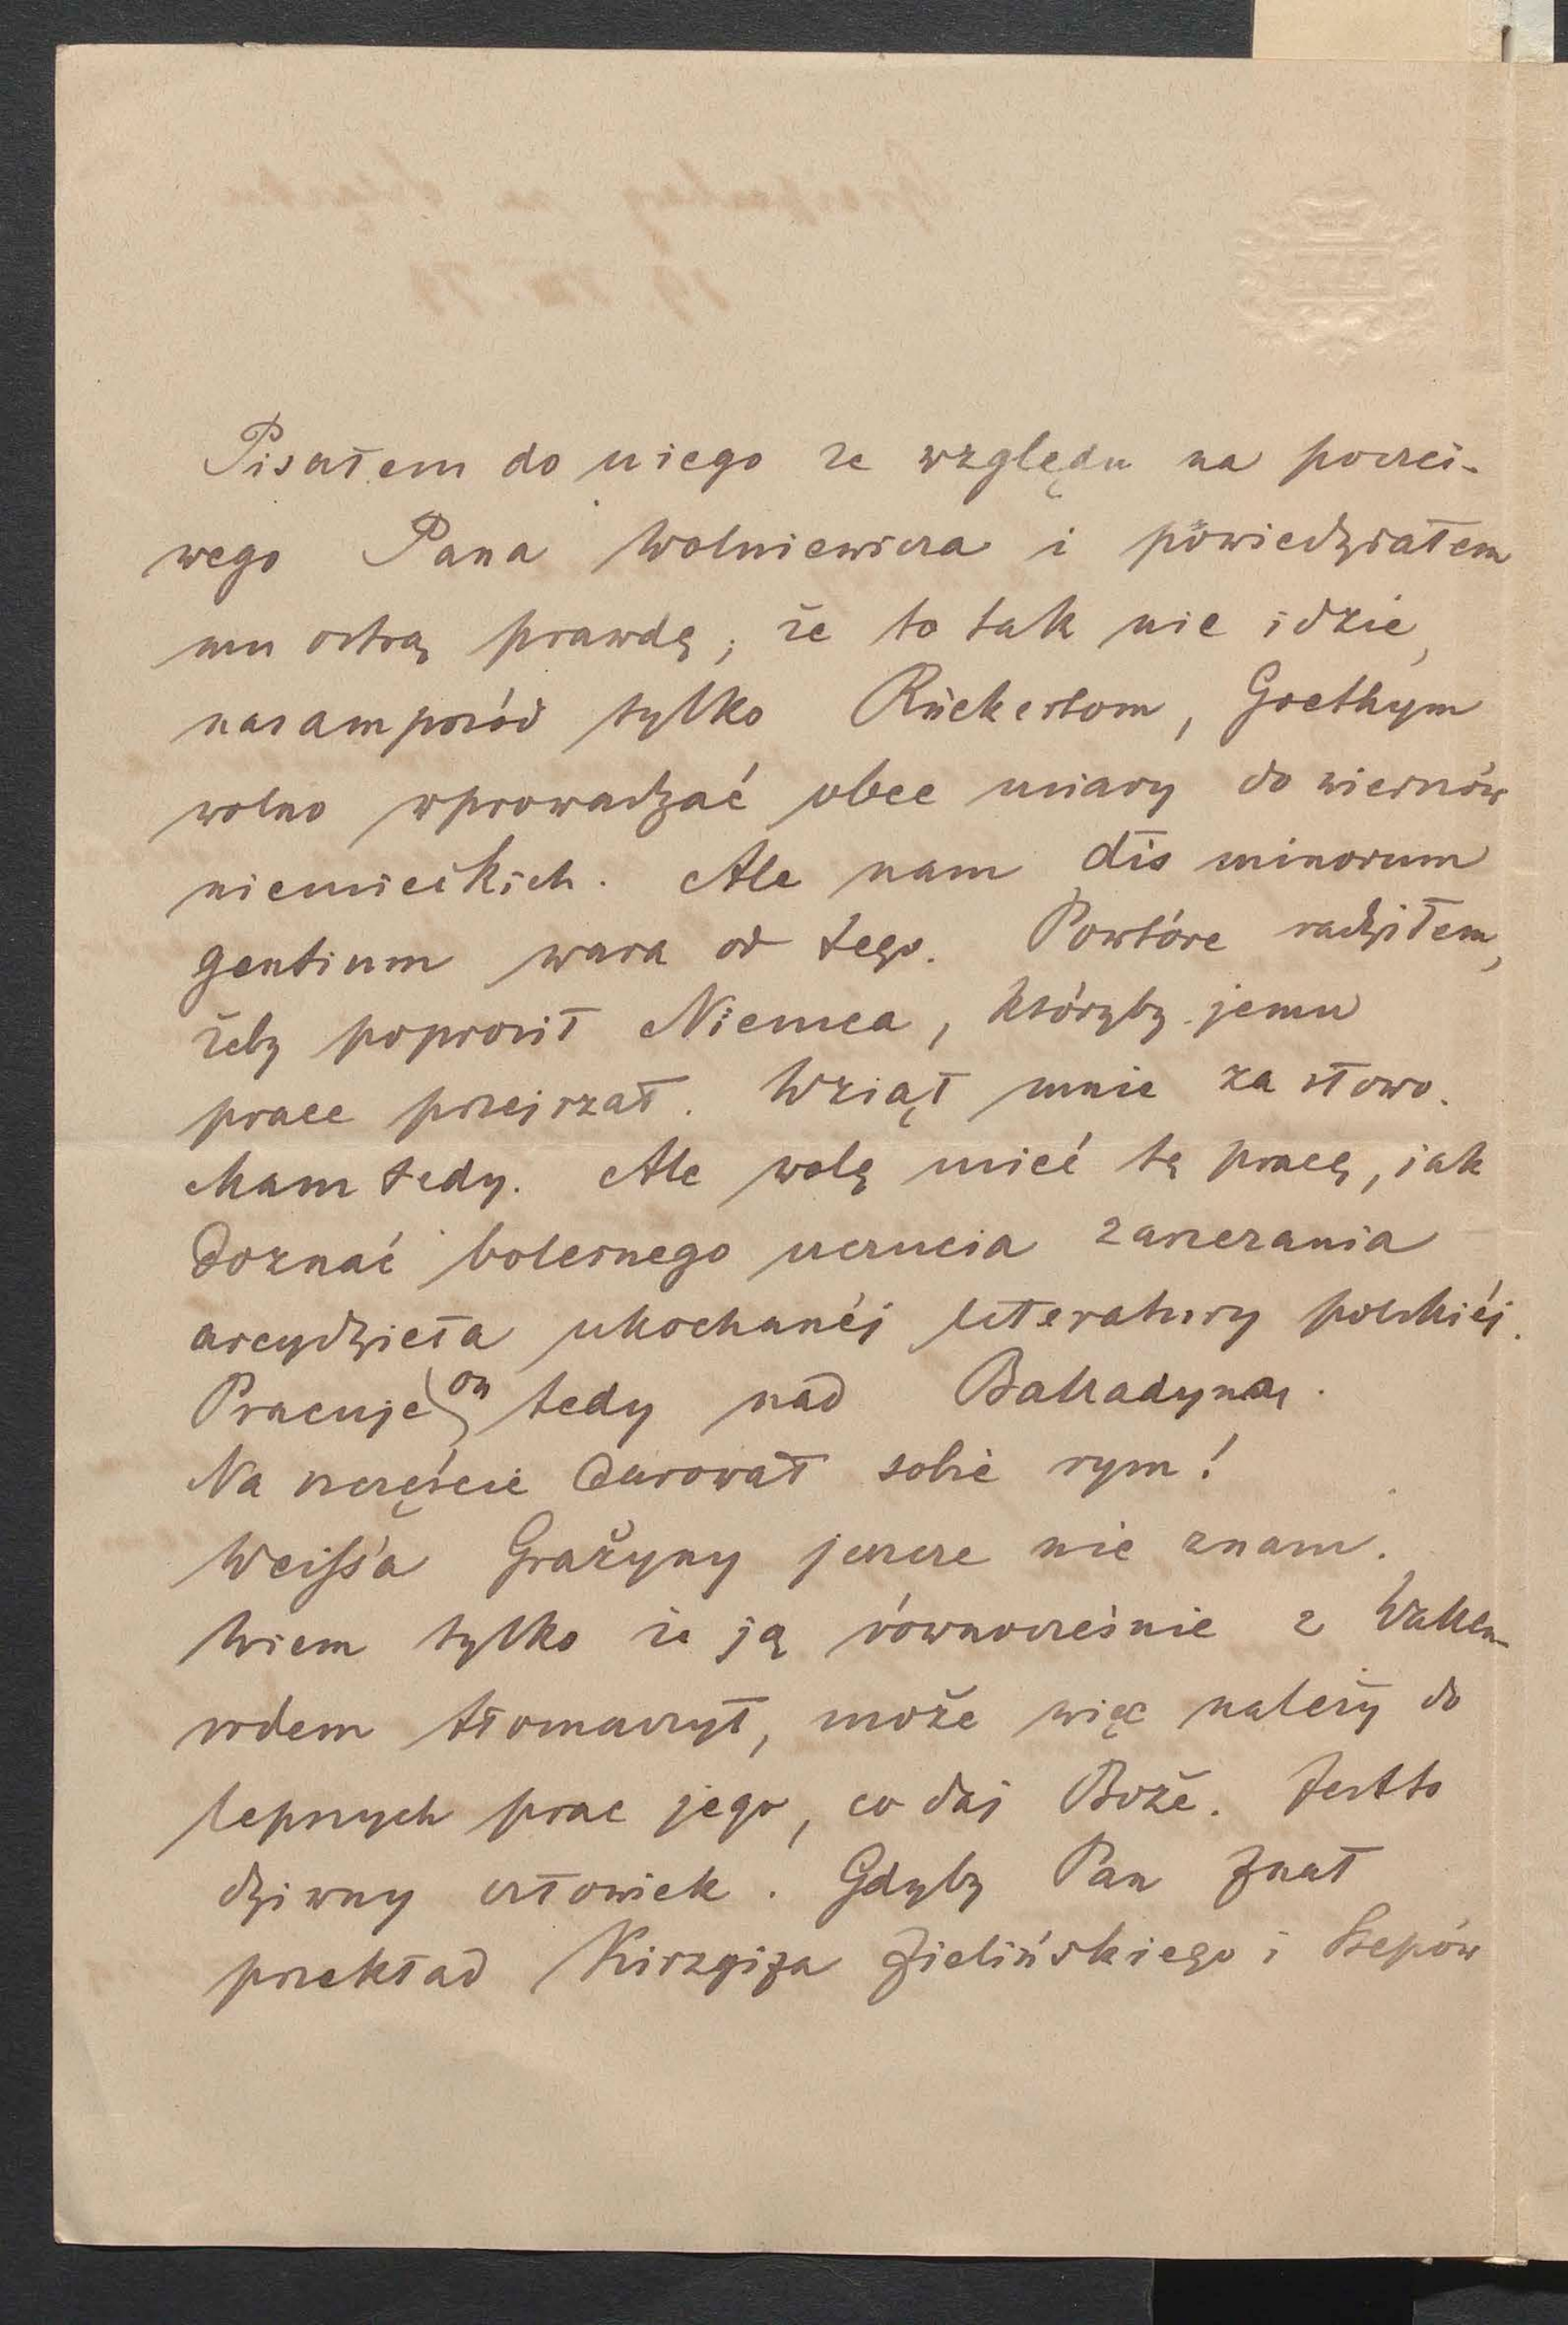 Pisałem do niego ze względu na poczci-
wego Pana Wolniewicza i powiedziałem
mu ostrą prawdę, że to tak nie idzie,
nasamprzód tylko Rückertom, Goethym
wolno wprowadzać obce miary do wierszów
niemieckich. Ale nam dis minorum
gentium wara od tego. Powtóre radziłem,
żeby poprosił Niemca, któryby jemu
prace przejrzał. Wziął mnie za słowo.
Mam tedy. Ale wolę mieć tę pracę, jak
doznać bolesnego uczucia zarzezania
arcydzieła ukochanéj literatury polskiéj.
Pracuje on tedy nad Balladyną.
Na szczęście darował sobie rym!
Weiss'a Grażyny jeszcze nie znam.
Wiem tylko że ją równocześnie z Wallen-
rodem tłomaczył, może więc należy do
lepszych prac jego, co daj Boże. Jestto
dziwny człowiek. Gdyby Pan znał
przekład Kirzgiza Zielińskiego i Stepów